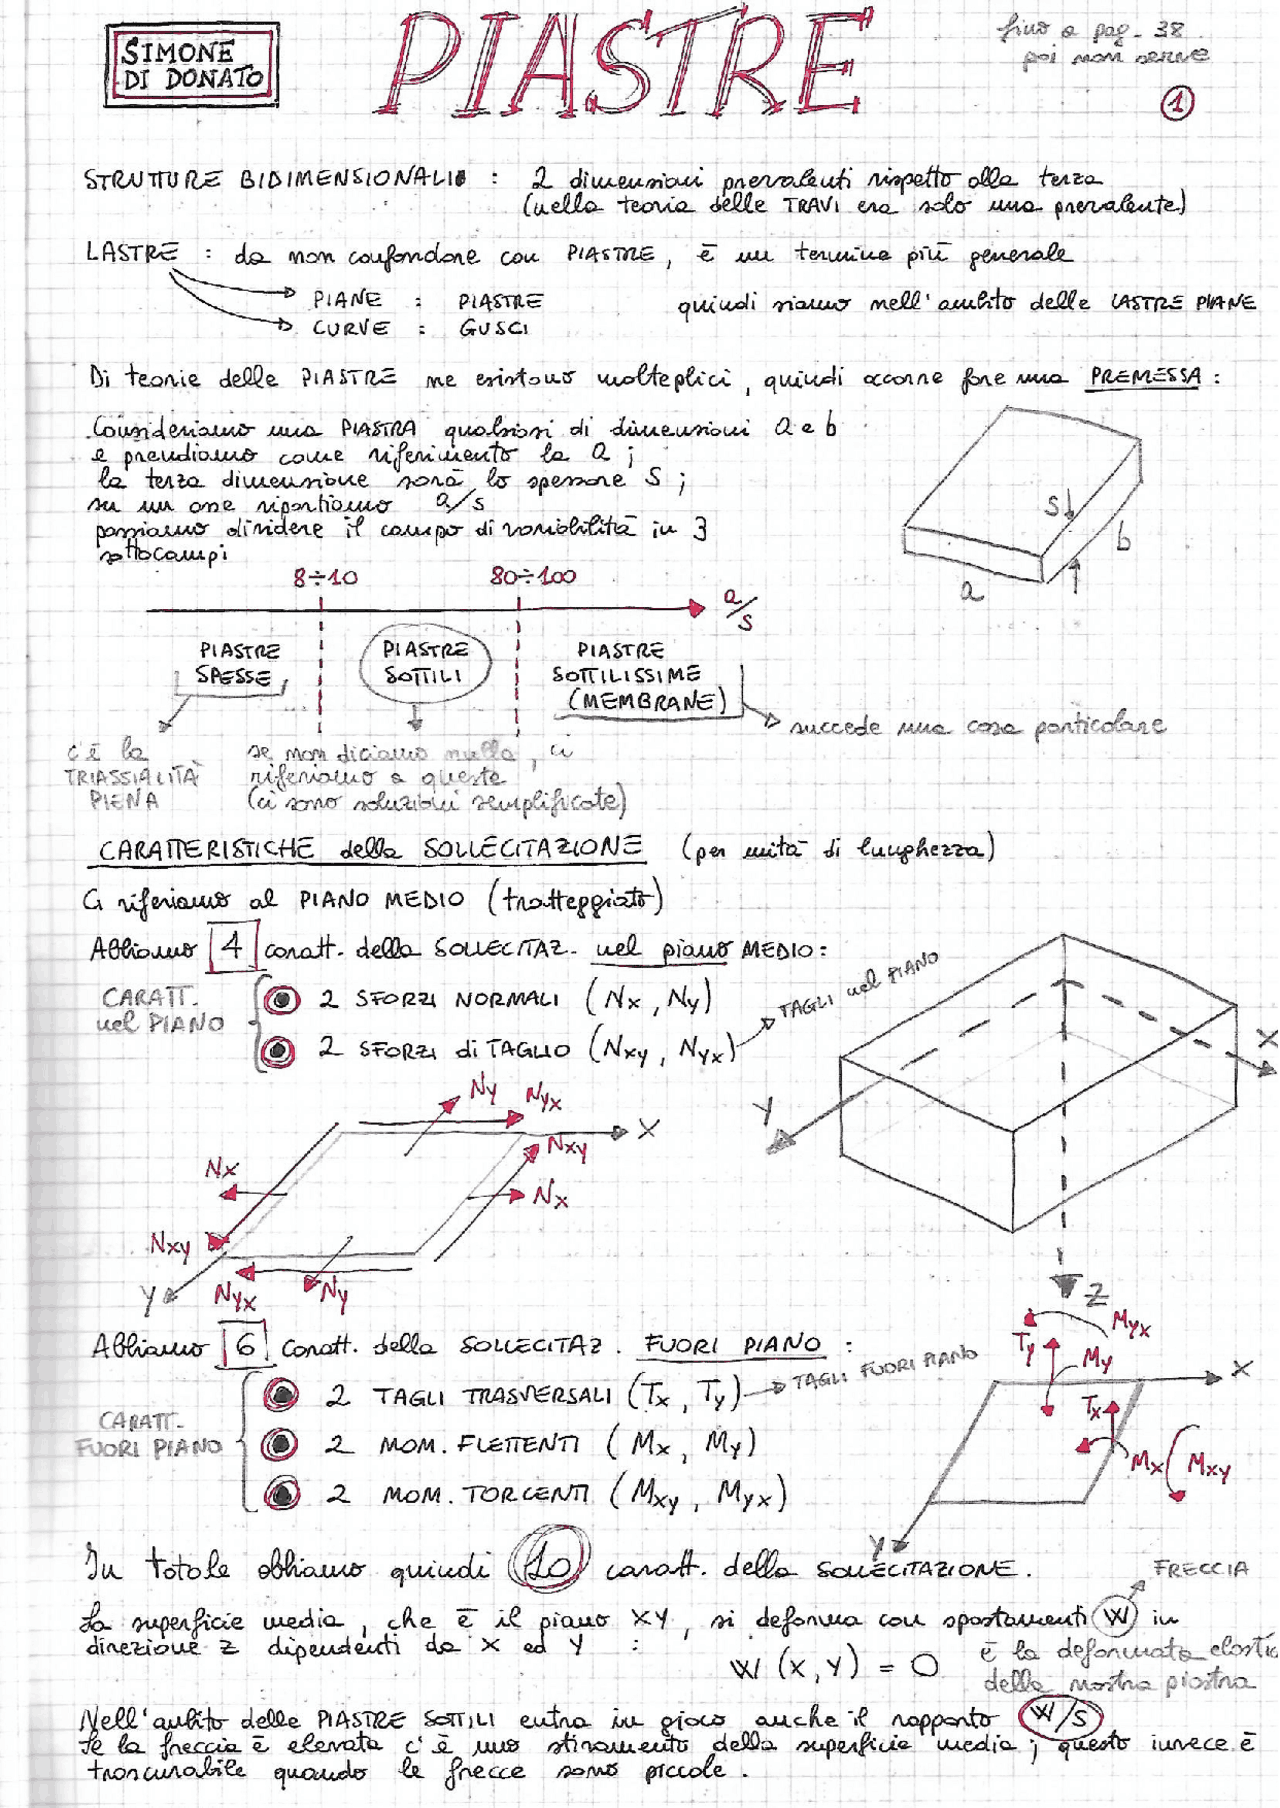 SIMONE
DI DONATO
PIASTRE
fino a pag. 38
poi non serve
1
STRUTTURE BIDIMENSIONALI : 2 dimensioni prevalenti rispetto alla terza
(nella teoria delle TRAVI era solo una prevalente)
LASTRE : da non confondere con PIASTRE, è un termine più generale
PIANE : PIASTRE
quindi siamo nell'ambito delle LASTRE PIANE
CURVE : GUSCI
Di teorie delle PIASTRE ne esistono molteplici, quindi occorre fare una PREMESSA :
Consideriamo una PIASTRA qualsiasi di dimensioni a e b
e prendiamo come riferimento la a ;
la terza dimensione sarà lo spessore S ;
su un asse riportiamo a/s
possiamo dividere il campo di variabilità in 3
sottocampi
S
b
a
8÷10
80÷100
a/s
PIASTRE
SPESSE
PIASTRE
SOTTILI
PIASTRE
SOTTILISSIME
(MEMBRANE)
succede una cosa particolare
c'è la
TRIASSIALITÀ
PIENA
se non diciamo nulla, ci
riferiamo a queste
(ci sono soluzioni semplificate)
CARATTERISTICHE della SOLLECITAZIONE (per unità di lunghezza)
Ci riferiamo al PIANO MEDIO (tratteggiato)
Abbiamo 4 caratt. della SOLLECITAZ. nel piano MEDIO:
CARATT.
nel PIANO
2 SFORZI NORMALI (Nx, Ny)
2 SFORZI di TAGLIO (Nxy, Nyx)
TAGLI nel PIANO
X
Y
Z
Ny
Nyx
X
Nxy
Nx
Nx
Nxy
Y
Nyx
Ny
Abbiamo 6 caratt. della SOLLECITAZ. FUORI PIANO :
CARATT.
FUORI PIANO
2 TAGLI TRASVERSALI (Tx, Ty)
TAGLI FUORI PIANO
2 MOM. FLETTENTI (Mx, My)
2 MOM. TORCENTI (Mxy, Myx)
Myx
Ty
My
X
Tx
Mx
Mxy
Y
In totale abbiamo quindi 10 caratt. della SOLLECITAZIONE.
FRECCIA
La superficie media, che è il piano XY, si deforma con spostamenti W in
direzione z dipendenti da X ed Y :
W (X, Y) = 0
è la deformata elastic
della nostra piastra
Nell'ambito delle PIASTRE SOTTILI entra in gioco anche il rapporto W/S
se la freccia è elevata c'è uno stiramento della superficie media ; questo invece è
trascurabile quando le frecce sono piccole.